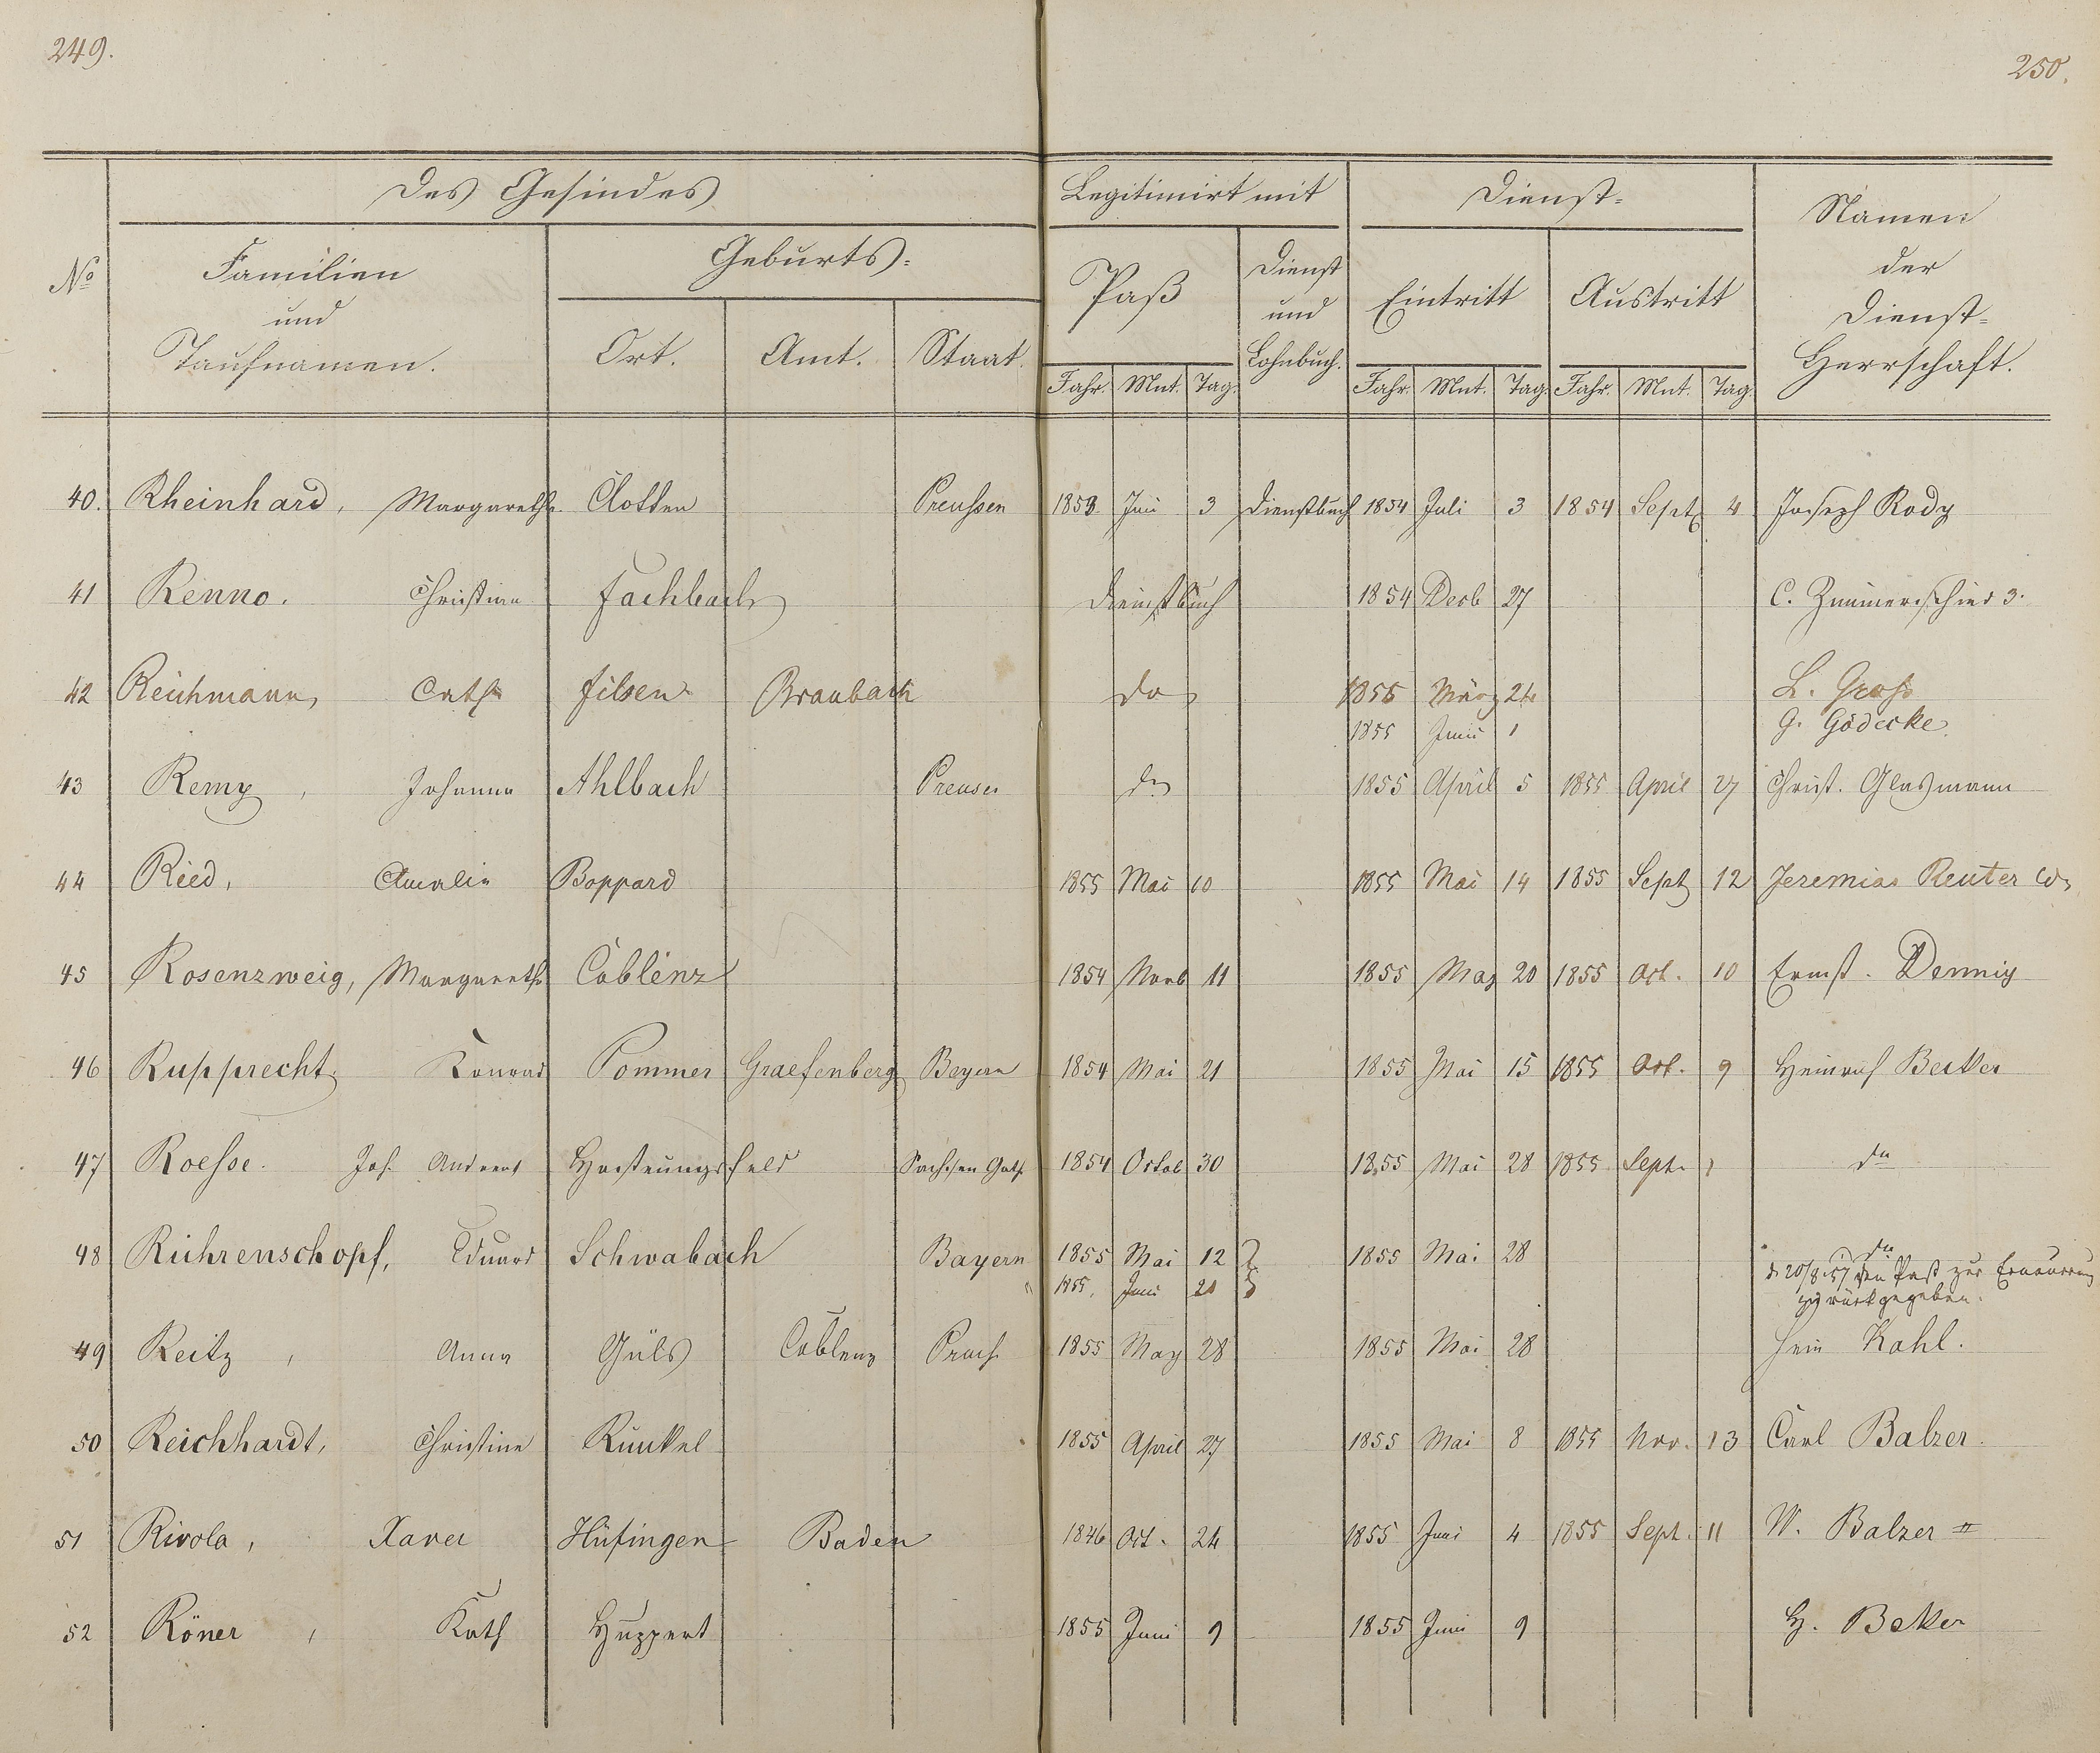 249.
250.
Des Gesindes
Legitimirt mit
Dienst-
Namen
der
Dienst-
Herrschaft.
No
Familien
und
Taufnamen.
Geburts-
Ort. Amt. Staat.
Paß
Dienst
und
Lohnbuch.
Eintritt
Austritt
Jahr. Mnt. Tag. Jahr. Mnt. Tag. Jahr. Mnt. Tag.
40. Rheinhard, Margarethe Clotten Preussen 1853 Juni 3 Dienstbuch 1854 Juli 3 1854 Sept 4 Joseph Rody
41 Renno. Christina Fachbach Dienstbuch 1854 Decb 27 C. Zimmerschied 3.
42 Reichmann, Cath Filsen Braubach do 1855 März 24 L. Gross
1855 Juni 1 G. Gödecke.
43 Remy, Johanna Ahlbach Preusen do 1855 April 5 1855 April 27 Christ. Glasmann
44 Ried, Amalie Boppard 1855 Mai 10 1855 Mai 14 1855 Sept 12 Jeremias Reuter
45 Rosenzweig, Margareth Coblenz 1854 Novb 11 1855 May 20 1855 Oct. 10 Ernst. Dennig
46 Rupprecht, Konrad Pommer Graefenberg Bayern 1854 Mai 21 1855 Mai 15 1855 Oct. 9 Heinrich Becker
47 Roesse. Joh. Andreas Hastrungsfeld Sachsen Goth. 1854 Octob 30 1855 Mai 28 1855 Sept. 1 do
48 Rührenschopf, Eduard Schwabach Bayern 1855 Mai 12 1855 Mai 28 do
" 1855. Juni 20 d. 20/8.57 den Paß zur Erneuerung
zurückgegeben.
49 Reitz, Anna Güls Coblenz Preuss. 1855 May 28 1855 Mai 28 Hein Kahl.
50 Reichhardt, Christine Runkel 1855 April 27 1855 Mai 8 1855 Nov. 13 Carl Balzer.
51 Rivola, Xaver Hüfingen Baden 1846 Oct. 24 1855 Juni 4 1855 Sept. 11 W. Balzer II
52 Röner, Kath Huppert 1855 Juni 9 1855 Juni 9 H. Beker